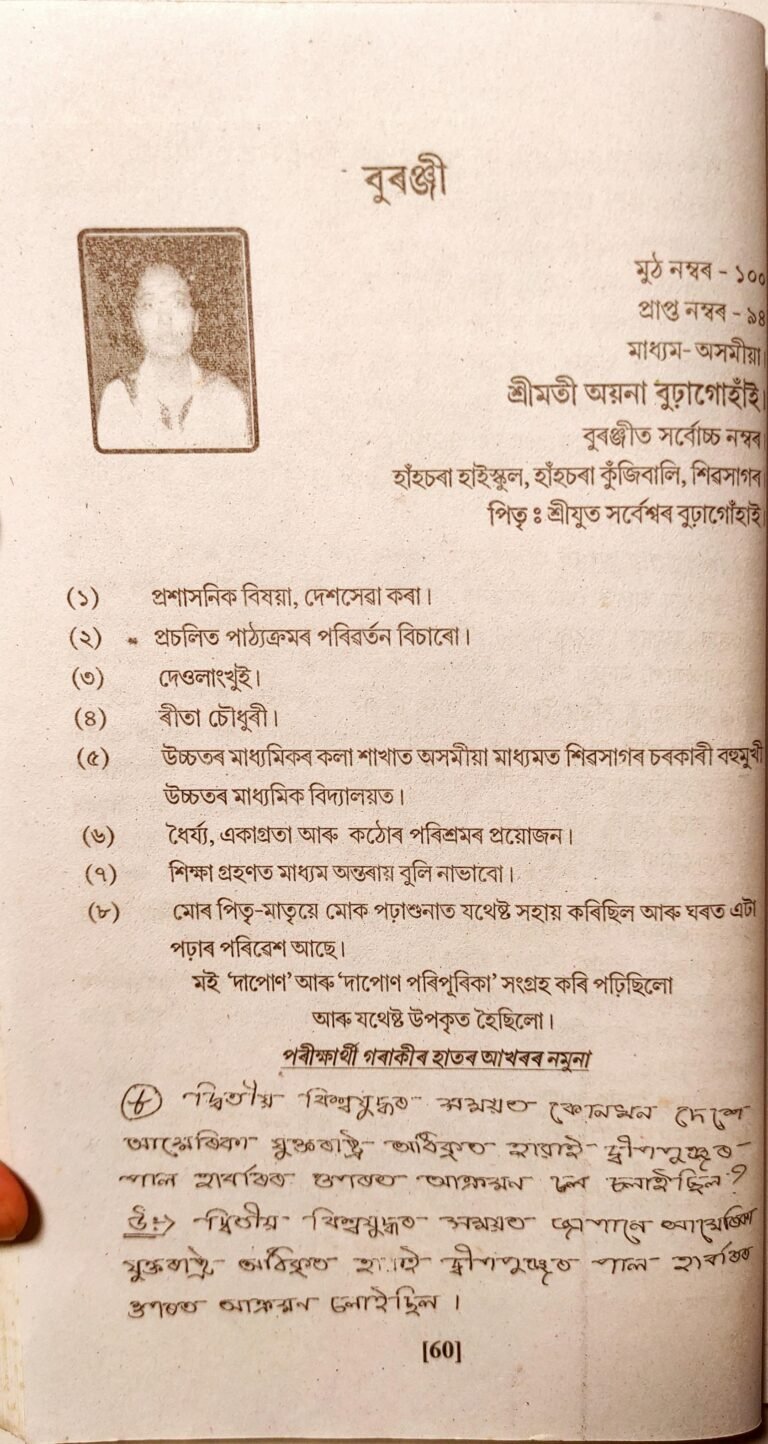 বুৰঞ্জী
মুঠ নম্বৰ - ১০০
প্ৰাপ্ত নম্বৰ - ৯৪
মাধ্যম- অসমীয়া।
শ্ৰীমতী অয়না বুঢ়াগোহাঁই।
বুৰঞ্জীত সৰ্বোচ্চ নম্বৰ
হাঁহচৰা হাইস্কুল, হাঁহচৰা কুঁজিবালি, শিৱসাগৰ
পিতৃ ঃ শ্ৰীযুত সৰ্বেশ্বৰ বুঢ়াগোঁহাই
(১) প্ৰশাসনিক বিষয়া, দেশসেৱা কৰা।
(২) প্ৰচলিত পাঠ্যক্ৰমৰ পৰিৱৰ্তন বিচাৰো।
(৩) দেওলাংখুই।
(৪) ৰীতা চৌধুৰী।
(৫) উচ্চতৰ মাধ্যমিকৰ কলা শাখাত অসমীয়া মাধ্যমত শিৱসাগৰ চৰকাৰী বহুমুখী
উচ্চতৰ মাধ্যমিক বিদ্যালয়ত।
(৬) ধৈৰ্য্য, একাগ্ৰতা আৰু কঠোৰ পৰিশ্ৰমৰ প্ৰয়োজন।
(৭) শিক্ষা গ্ৰহণত মাধ্যম অন্তৰায় বুলি নাভাবো।
(৮) মোৰ পিতৃ-মাতৃয়ে মোক পঢ়াশুনাত যথেষ্ট সহায় কৰিছিল আৰু ঘৰত এটা
পঢ়াৰ পৰিৱেশ আছে।
মই ‘দাপোণ’ আৰু ‘দাপোণ পৰিপূৰিকা’ সংগ্ৰহ কৰি পঢ়িছিলো
আৰু যথেষ্ট উপকৃত হৈছিলো।
পৰীক্ষাৰ্থী গৰাকীৰ হাতৰ আখৰৰ নমুনা
দ্বিতীয় বিশ্বযুদ্ধৰ সময়ত কোনখন দেশে
আমেৰিকা যুক্তৰাষ্ট্ৰ অধিকৃত হাৱাই দ্বীপপুঞ্জৰ
পাল হাৰ্বাৰৰ ওপৰত আক্ৰমন চলাইছিল?
উঃ⇒ দ্বিতীয় বিশ্বযুদ্ধৰ সময়ত জাপানে আমেৰিকা
যুক্তৰাষ্ট্ৰ অধিকৃত হাৱাই দ্বীপপুঞ্জৰ পাল হাৰ্বাৰৰ
ওপৰত আক্ৰমন চলাইছিল।
[60]